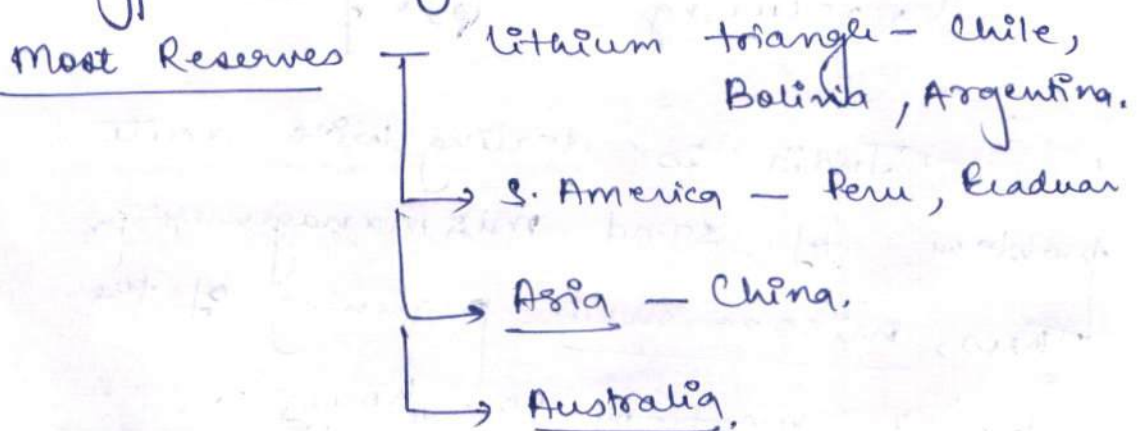 Most Reserves — Lithium triangle – Chile,
Bolivia, Argentina.
→ S. America — Peru, Ecaduar
→ Asia — China.
→ Australia.